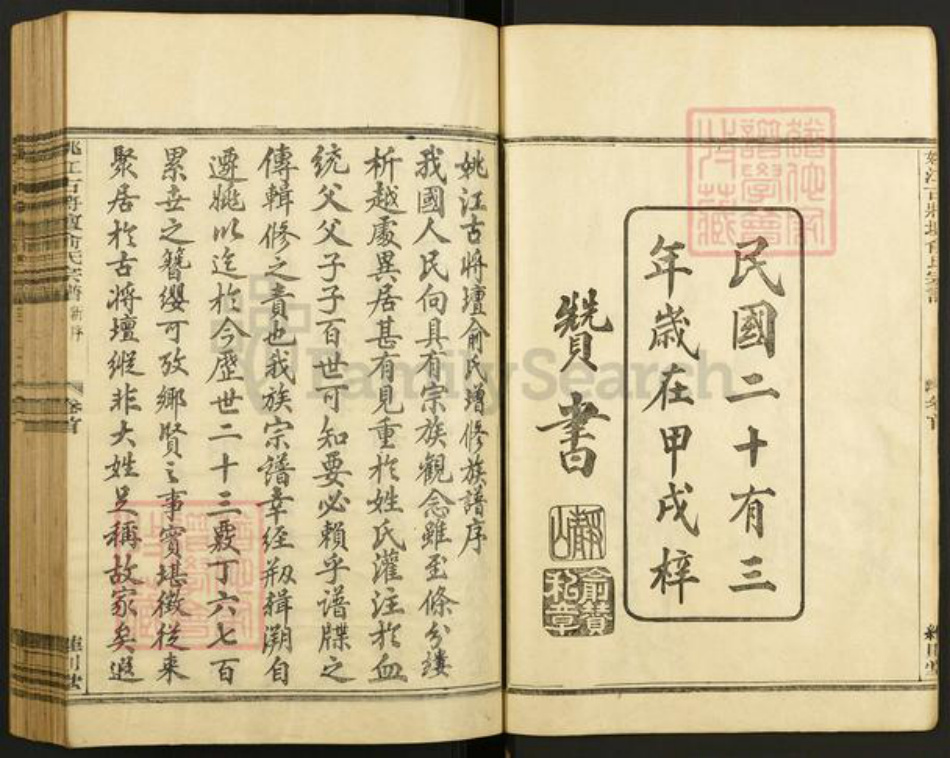 民國二十有三
年歲在甲戌梓
贊書
靜山
俞贊
私章
姚江古將壇俞氏增修族譜序
我國人民向具有宗族觀念雖至條分縷
析越處異居甚有見重於姓氏灌注於血
統父父子子百世可知要必賴乎譜牒之
傳輯修之責也我族宗譜幸經剏緝溯自
遷姚以迄於今歷世二十三覈丁六七百
累世之簪纓可攷鄉賢之事實堪徵從來
聚居於古將壇縱非大姓足稱故家矣遐
姚江古將壇俞氏宗譜
新序
卷首
FamilySearch